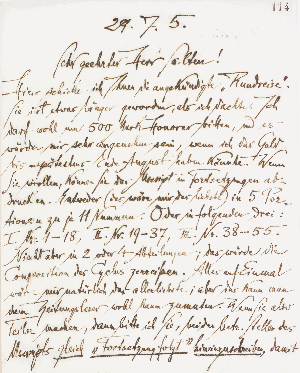 114
29. 7. 5.
Sehr geehrter Herr Salten!
Hier schicke ich Ihnen die angekündigte „Rundreise".
Sie ist etwas länger geworden, als ich dachte. Ich
darf wohl um 500 Mark Honorar bitten, und es
würde mir sehr angenehm sein, wenn ich das Geld
bis spätestens Ende August haben könnte. Wenn
Sie wollen, können Sie das Manuskript in Fortsetzungen ab-
drucken. Entweder (das wäre mir das liebste) in 5 Por-
tionen zu je 11 Nummern. Oder in folgenden drei:
I. Nr. 1–18, II. Nr. 19–37, III. Nr. 38–55.
Nicht aber in 2 oder 4 Abteilungen; das würde die
Composition des Cyclus zerreissen. Alles auf einmal
wäre mir natürlich das allerliebste; aber das kann man
dem Zeitungsleser wohl kaum zumuten. Wenn Sie aber
Teile machen, dann bitte ich Sie, bei den betr. Stellen des
Manuskripts gleich „Fortsetzung folgt" hineinzuschreiben, damit